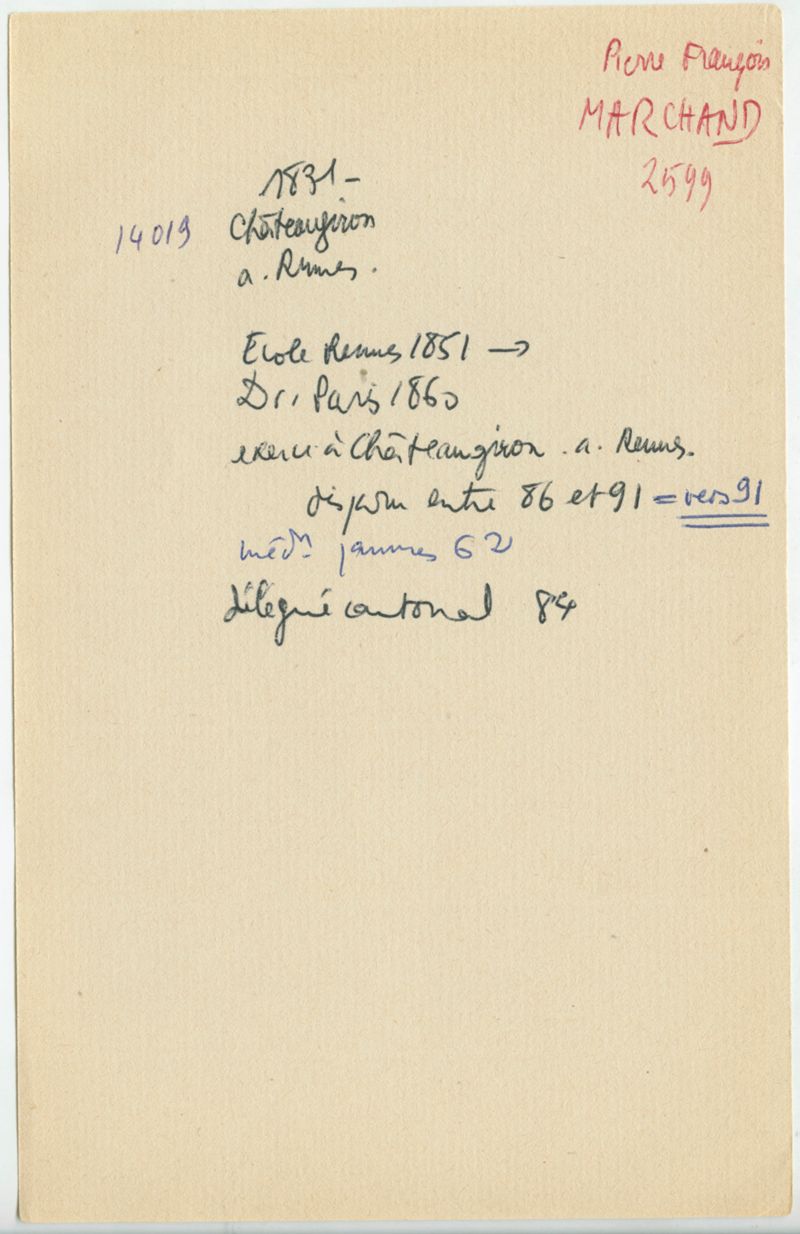 Pierre François
MARCHAND
2599
1831 -
14019 Châteaugiron
a. Rennes.
Ecole Rennes 1851 →
Dr. Paris 1860
exerce à Châteaugiron . a. Rennes.
disparu entre 86 et 91 = vers 91
médn 62
délégué cantonal 84